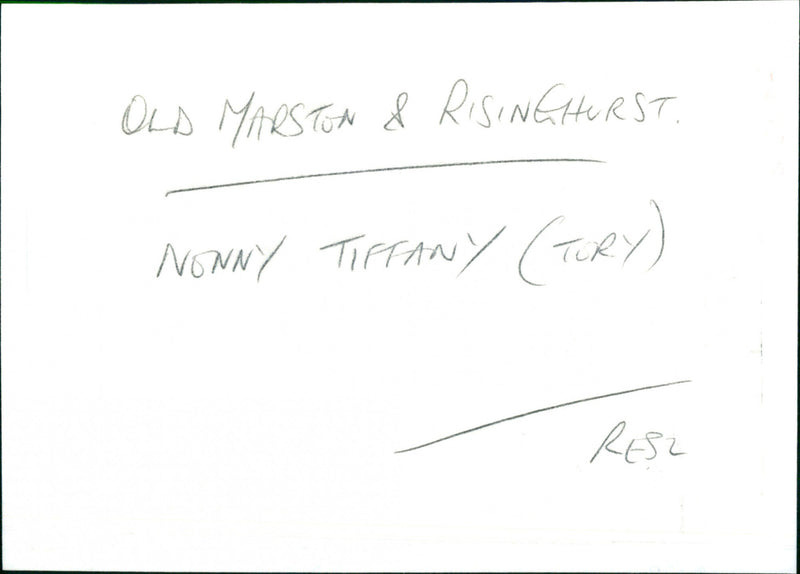 OLD MARSTON & RISINGHURST.
NONNY TIFFANY (TORY)